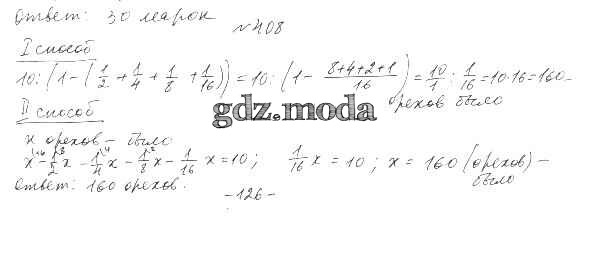 Ответ: 30 марок
№408
I способ
10:(1-(1/2+1/4+1/8+1/16))=10:(1-(8+4+2+1)/16)=10/1:1/16=10·16=160-
орехов было
gdz.moda
II способ
х орехов - было
х-1/2х-1/4х-1/8х-1/16х=10; 1/16х=10; х=160 (орехов)-
было
Ответ: 160 орехов.
-126-